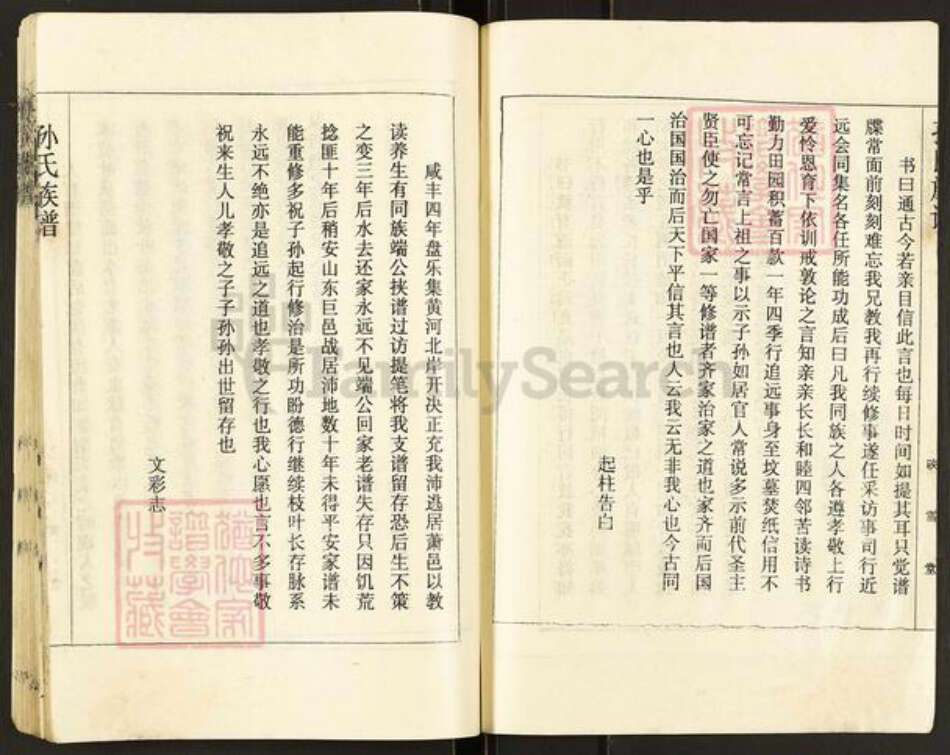 书曰通古今若亲目信此言也每日时间如提其耳只觉谱
牒常面前刻刻难忘我兄教我再行续修事遂任采访事司行近
远会同集名各任所能功成后曰凡我同族之人各遵孝敬上行
爱怜恩育下依训戒敦论之言知亲亲长长和睦四邻苦读诗书
勤力田园积蓄百款一年四季行追远事身至坟墓焚纸信用不
可忘记常言上祖之事以示子孙如居官人常说多示前代圣主
贤臣使之勿亡国家一等修谱者齐家治家之道也家齐而后国
治国国治而后天下平信其言也人云我云无非我心也今古同
一心也是乎
起柱告白
咸丰四年盘乐集黄河北岸开决正充我沛逃居萧邑以教
读养生有同族端公挟谱过访提笔将我支谱留存恐后生不策
之变三年后水去还家永远不见端公回家老谱失存只因饥荒
捻匪十年后稍安山东巨邑战居沛地数十年未得平安家谱未
能重修多祝子孙起行修治是所功盼德行继续枝叶长存脉系
永远不绝亦是追远之道也孝敬之行也我心愿也言不多事敬
祝来生人儿孝敬之子子孙孙出世留存也
文彩志
孙氏族谱
FamilySearch